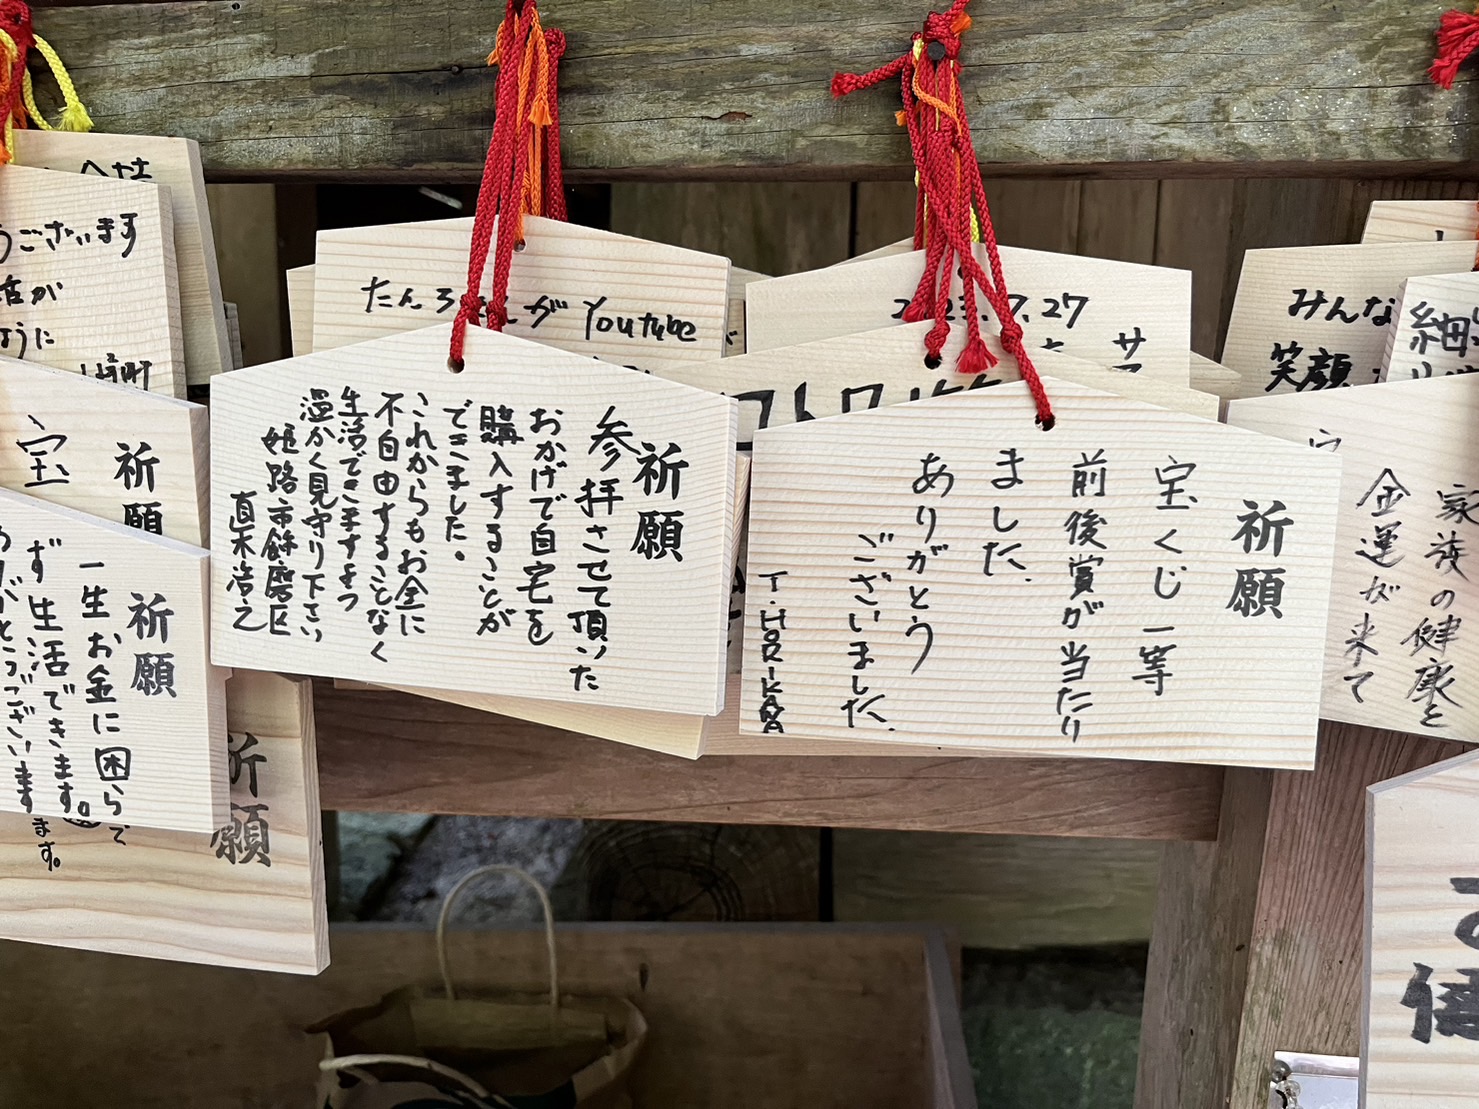 祈願
宝くじ一等
前後賞が当たり
ました.
ありがとう
ございました.
T.HORIKAWA
祈願
参拝させて頂いた
おかげで自宅を
購入することが
できました。
これからもお金に
不自由することなく
生活できますよう
温かく見守り下さい
姫路市飾磨区
直木浩之
たんろ
が Youtube
7.27
サ
みんな
笑顔
家族の健康と
金運が来て
ございます
ように
祈願
宝
祈願
一生お金に困らで
ず生活できます。
ありがとうございます
ます。
祈願